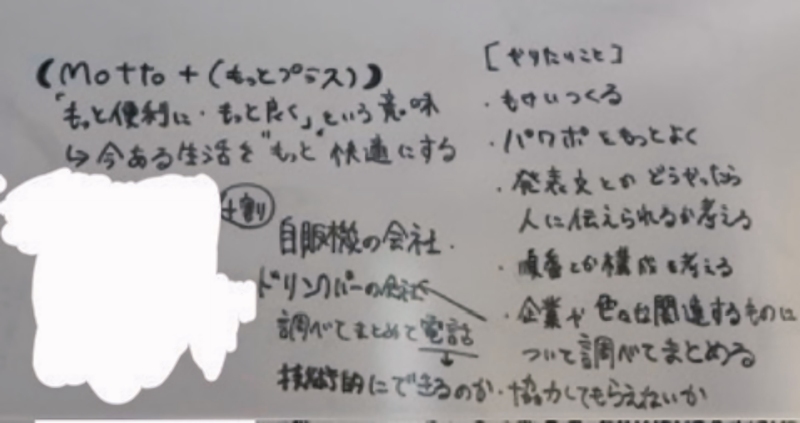 【Motto + (もっとプラス)】
「もっと便利に・もっと良く」という意味
↳ 今ある生活を"もっと"快適にする
自販機の会社.
ドリンクバーの会社
調べてまとめて電話
技術的にできるのか
[やりたいこと]
・もけいつくる
・パワポをもっとよく
・発表文とか どうやったら
人に伝えられるか考える
・順番とか構成を考える
・企業や 色々な関連するものに
ついて調べてまとめる
・協力してもらえないか